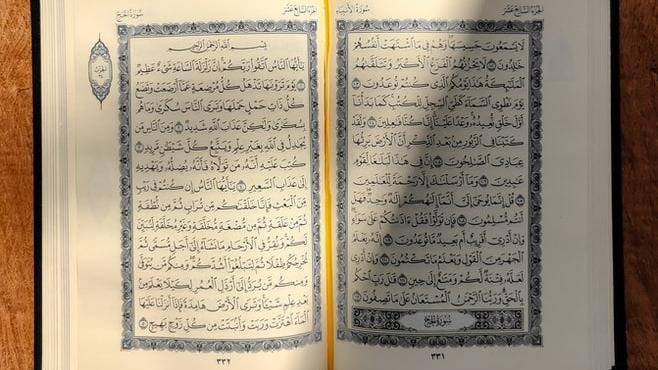 الجزء السابع عشر
سورة الأنبياء
لَا يَسْمَعُونَ حَسِيسَهَا وَهُمْ فِي مَا ٱشْتَهَتْ أَنفُسُهُمْ
خَٰلِدُونَ ١٠٢ لَا يَحْزُنُهُمُ ٱلْفَزَعُ ٱلْأَكْبَرُ وَتَتَلَقَّىٰهُمُ
ٱلْمَلَٰٓئِكَةُ هَٰذَا يَوْمُكُمُ ٱلَّذِي كُنتُمْ تُوعَدُونَ ١٠٣
يَوْمَ نَطْوِي ٱلسَّمَآءَ كَطَيِّ ٱلسِّجِلِّ لِلْكُتُبِ كَمَا بَدَأْنَآ
أَوَّلَ خَلْقٍ نُّعِيدُهُۥ وَعْدًا عَلَيْنَآ إِنَّا كُنَّا فَٰعِلِينَ ١٠٤ وَلَقَدْ
كَتَبْنَا فِي ٱلزَّبُورِ مِنۢ بَعْدِ ٱلذِّكْرِ أَنَّ ٱلْأَرْضَ يَرِثُهَا
عِبَادِيَ ٱلصَّٰلِحُونَ ١٠٥ إِنَّ فِي هَٰذَا لَبَلَٰغًا لِّقَوْمٍ
عَٰبِدِينَ ١٠٦ وَمَآ أَرْسَلْنَٰكَ إِلَّا رَحْمَةً لِّلْعَٰلَمِينَ ١٠٧
قُلْ إِنَّمَا يُوحَىٰٓ إِلَيَّ أَنَّمَآ إِلَٰهُكُمْ إِلَٰهٌ وَٰحِدٌ فَهَلْ
أَنتُم مُّسْلِمُونَ ١٠٨ فَإِن تَوَلَّوْا۟ فَقُلْ ءَاذَنتُكُمْ عَلَىٰ سَوَآءٍ
وَإِنْ أَدْرِيٓ أَقَرِيبٌ أَم بَعِيدٌ مَّا تُوعَدُونَ ١٠٩ إِنَّهُۥ يَعْلَمُ
ٱلْجَهْرَ مِنَ ٱلْقَوْلِ وَيَعْلَمُ مَا تَكْتُمُونَ ١١٠ وَإِنْ أَدْرِي
لَعَلَّهُۥ فِتْنَةٌ لَّكُمْ وَمَتَٰعٌ إِلَىٰ حِينٍ ١١١ قَٰلَ رَبِّ ٱحْكُم
بِٱلْحَقِّ وَرَبُّنَا ٱلرَّحْمَٰنُ ٱلْمُسْتَعَانُ عَلَىٰ مَا تَصِفُونَ ١١٢
سورة الحج
٣٣١
الجزء السابع عشر
سورة الحج
بِسْمِ ٱللَّهِ ٱلرَّحْمَٰنِ ٱلرَّحِيمِ
يَٰٓأَيُّهَا ٱلنَّاسُ ٱتَّقُوا۟ رَبَّكُمْ إِنَّ زَلْزَلَةَ ٱلسَّاعَةِ شَيْءٌ عَظِيمٌ ١
يَوْمَ تَرَوْنَهَا تَذْهَلُ كُلُّ مُرْضِعَةٍ عَمَّآ أَرْضَعَتْ وَتَضَعُ
كُلُّ ذَاتِ حَمْلٍ حَمْلَهَا وَتَرَى ٱلنَّاسَ سُكَٰرَىٰ وَمَا هُم
بِسُكَٰرَىٰ وَلَٰكِنَّ عَذَابَ ٱللَّهِ شَدِيدٌ ٢ وَمِنَ ٱلنَّاسِ مَن
يُجَٰدِلُ فِي ٱللَّهِ بِغَيْرِ عِلْمٍ وَيَتَّبِعُ كُلَّ شَيْطَٰنٍ مَّرِيدٍ ٣
كُتِبَ عَلَيْهِ أَنَّهُۥ مَن تَوَلَّاهُ فَأَنَّهُۥ يُضِلُّهُۥ وَيَهْدِيهِ
إِلَىٰ عَذَابِ ٱلسَّعِيرِ ٤ يَٰٓأَيُّهَا ٱلنَّاسُ إِن كُنتُمْ فِي رَيْبٍ
مِّنَ ٱلْبَعْثِ فَإِنَّا خَلَقْنَٰكُم مِّن تُرَابٍ ثُمَّ مِن نُّطْفَةٍ
ثُمَّ مِنْ عَلَقَةٍ ثُمَّ مِن مُّضْغَةٍ مُّخَلَّقَةٍ وَغَيْرِ مُخَلَّقَةٍ لِّنُبَيِّنَ
لَكُمْ وَنُقِرُّ فِي ٱلْأَرْحَامِ مَا نَشَآءُ إِلَىٰٓ أَجَلٍ مُّسَمًّى ثُمَّ
نُخْرِجُكُمْ طِفْلًا ثُمَّ لِتَبْلُغُوٓا۟ أَشُدَّكُمْ وَمِنكُم مَّن يُتَوَفَّىٰ
وَمِنكُم مَّن يُرَدُّ إِلَىٰٓ أَرْذَلِ ٱلْعُمُرِ لِكَيْلَا يَعْلَمَ مِنۢ
بَعْدِ عِلْمٍ شَيْـًٔا وَتَرَى ٱلْأَرْضَ هَامِدَةً فَإِذَآ أَنزَلْنَا عَلَيْهَا
ٱلْمَآءَ ٱهْتَزَّتْ وَرَبَتْ وَأَنۢبَتَتْ مِن كُلِّ زَوْجٍۭ بَهِيجٍ ٥
٣٣٢